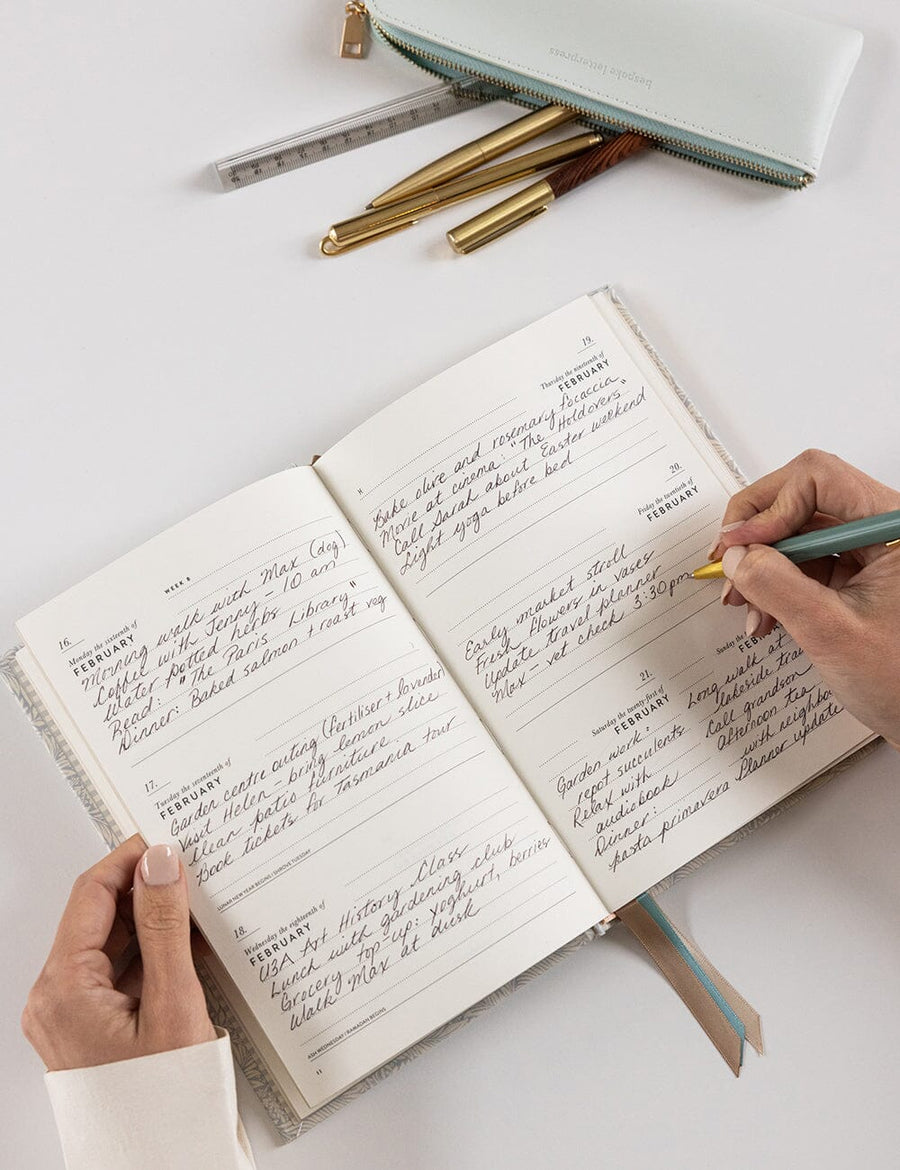 bespoke letterpress
WEEK 8
16.
Monday the sixteenth of
FEBRUARY
Morning walk with Max (dog)
Coffee with Jenny - 10 am
Water potted herbs
Read: "The Paris Library"
Dinner: Baked salmon + roast veg
17.
Tuesday the seventeenth of
FEBRUARY
Garden centre outing (fertiliser + lavender)
Visit Helen - bring lemon slice
Clean patio furniture.
Book tickets for Tasmania tour
LUNAR NEW YEAR BEGINS / SHROVE TUESDAY
18.
Wednesday the eighteenth of
FEBRUARY
U3A Art History Class
Lunch with gardening club
Grocery top-up: Yoghurt, berries
Walk Max at dusk
ASH WEDNESDAY / RAMADAN BEGINS
19.
Thursday the nineteenth of
FEBRUARY
Bake olive and rosemary focaccia
Movie at cinema: "The Holdovers"
Call Sarah about Easter weekend
Light yoga before bed
20.
Friday the twentieth of
FEBRUARY
Early market stroll
Fresh flowers in vases
Update travel planner
Max - vet check 3:30pm
21.
Saturday the twenty-first of
FEBRUARY
Garden work:
repot succulents
Relax with
audiobook
Dinner:
pasta primavera
Sunday the
Long walk at
lakeside trail
Call grandson
Afternoon tea
with neighbo
Planner update